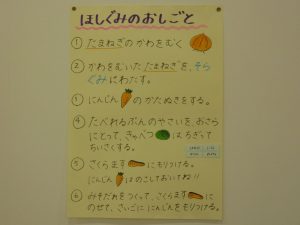 ほしぐみのおしごと
① たまねぎのかわをむく
② かわをむいたたまねぎを、そら
ぐみにわたす。
③ にんじん のかたぬきをする。
④ たべれるぶんのやさいを、おさら
にとって、きゃべつ はちぎって
ちいさくする。
⑤ さくらます にもりつける。
にんじん はのこしておいてね!!
⑥ みそだれをつくって、さくらます に
のせて、さいごに にんじんをもりつける。